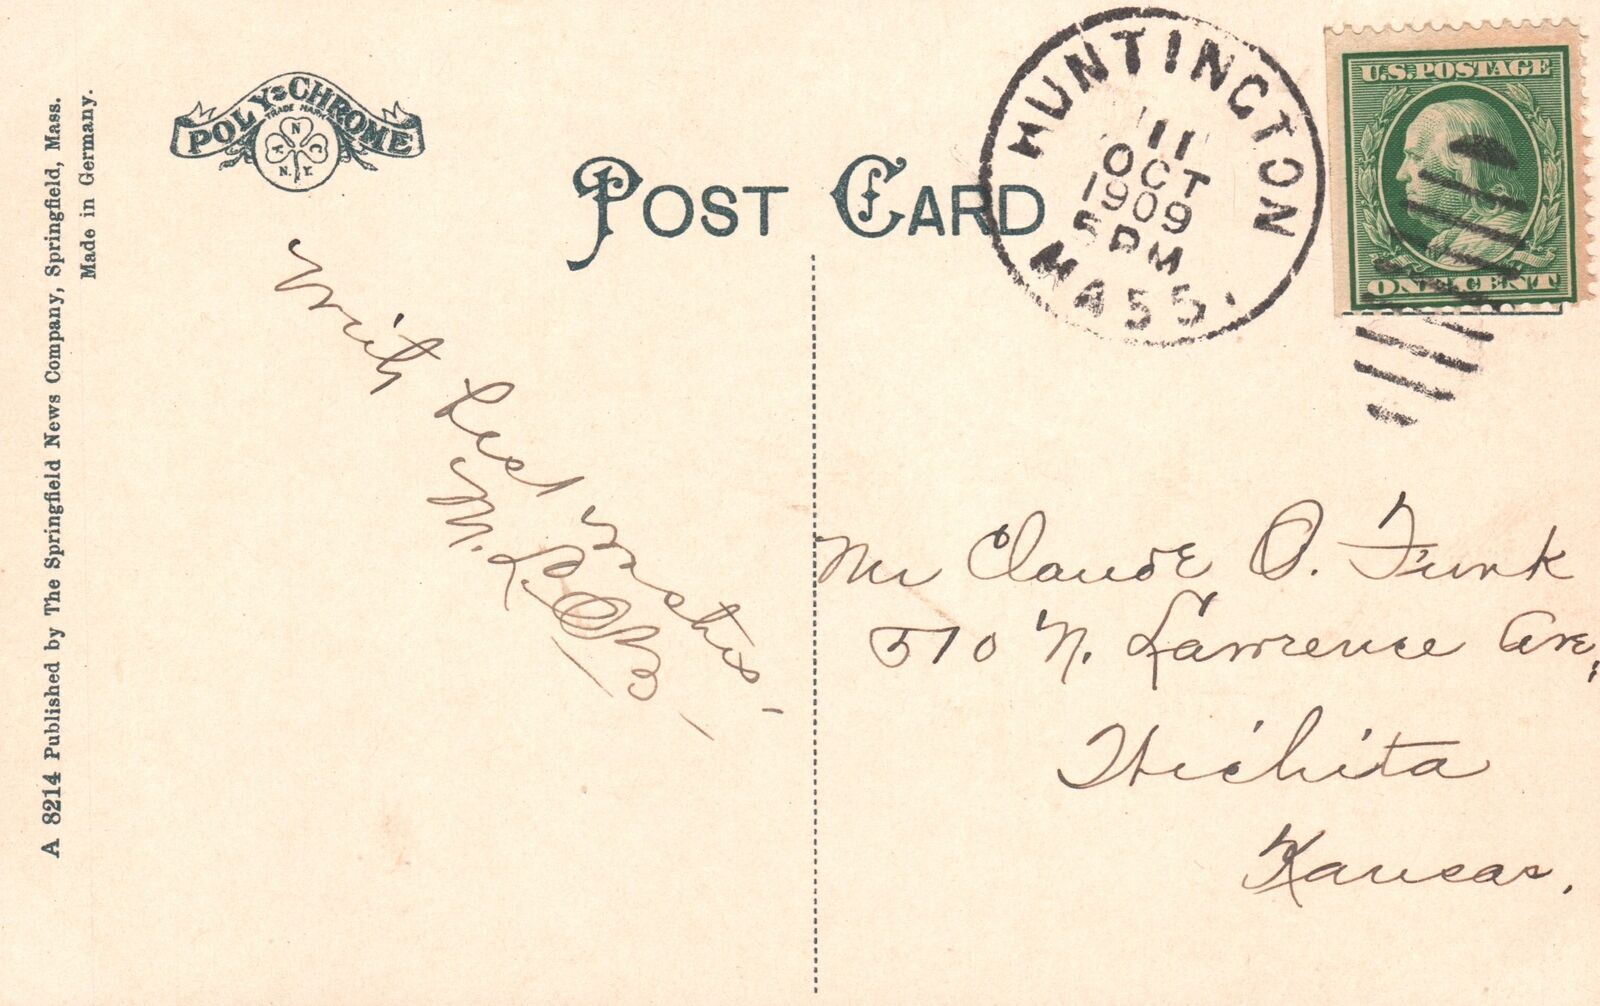 A 8214 Published by The Springfield News Company, Springfield, Mass.
Made in Germany.
POLY-CHROME
TRADE MARK
N
A C
N.Y.
POST CARD
HUNTINGTON
11
OCT
1909
5 PM
MASS.
U.S. POSTAGE
ONE CENT
With best wishes
M. L.
Mr Claude O. Funk
510 N. Lawrence Ave,
Wichita
Kansas.